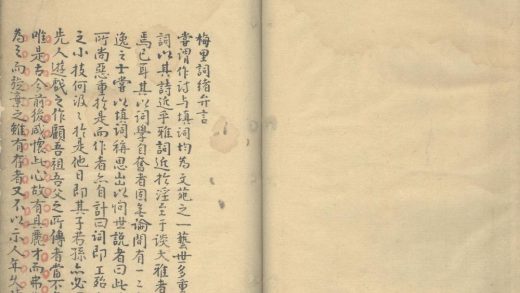 梅里詞緒弁言
嘗谓作诗与填词均為文苑之一藝世多重
詞以其詩近乎雅詞近於淫至于谈大雅者
焉已耳其以詞學自奮者固無論間有一二
逸之士嘗以填詞稱思出以问世説者曰此
所尚惡重於是而作者亦自計曰詞即工殆
之小技何汲〻於是他日即其子若孫亦必
先人遊戲之作顧吾祖吾父之所傳者當不
唯是古今前後咸懷此心故有具麗才而弗
為之而旋棄之雖有存者又不以示人年久